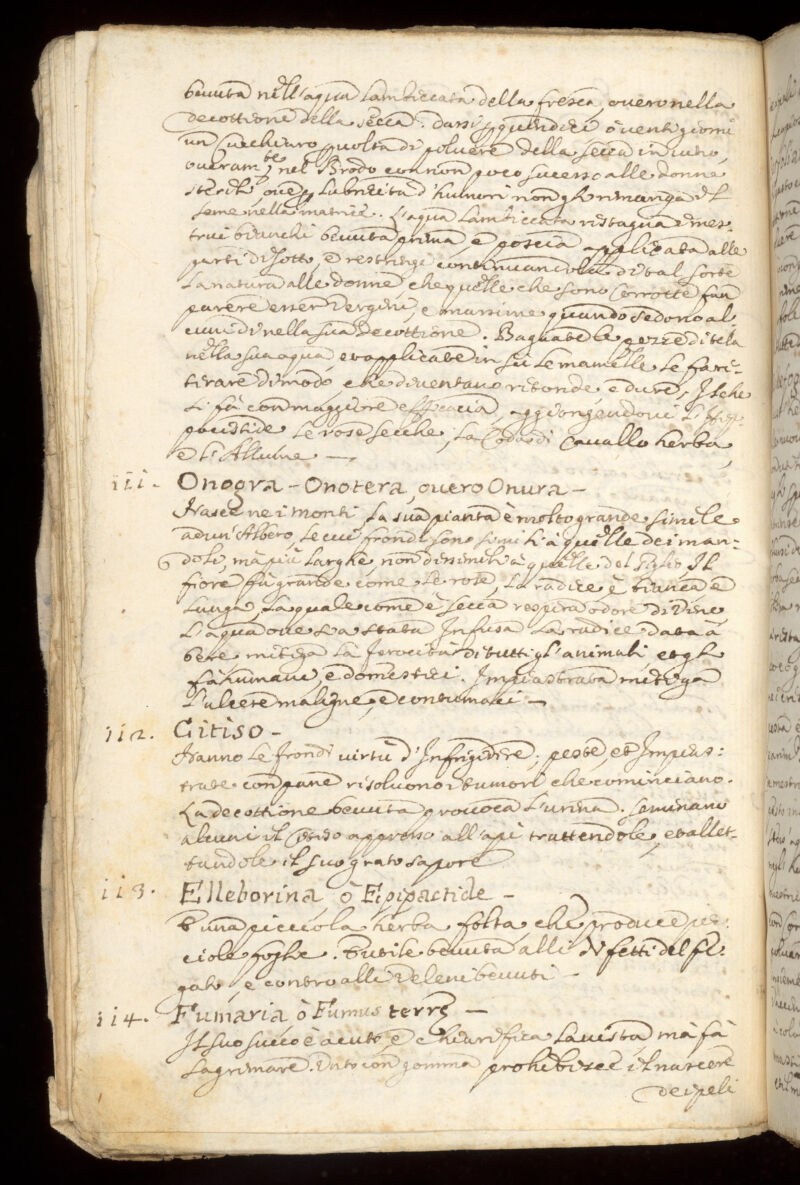 bevuta nell'aqua lambiccata della fresca, overo nella
decottione della secca. Dassi p quindici ò venti giorni
un Cucchiaro p volta di polvere della secca in vino,
overam.te nel Brodo con non poco sucesso alle donne
sterili, ove p lubricita d'humori non gli rimanga il
seme nella matrice. L'aqua lambiccata ristagna i mes-
trui bianchi bevuta prima e poscia applicata alle
parti di sotto, e restringe continuandola di tal sorte
la natura alle donne che quelle che sono Corrotte fan
parere esser Vergini, e massime quando sedono al
cuni dì nella sua decottione. Bagnate le pezze di tela
nella sua aqua, et applicate in sù le mamelle le fa ri-
tirare di modo che diventano ritonde, e dure, Il che
si fà con maggiore efficacia, aggiongendovi L'Hip
pocistide le rose secche, la Coda di Cavallo herba,
e L'Allume —
111. Onogra - Onotera, overo Onura -
Nasce ne i monti, La sua pianta è molto grande simile
ad un'Albero, le cui frondi sono simili à quelle dei man-
doli, mà più Larghe non dissimili à quelle del Giglio Il
fiore fà grande come le rose, La radice è bianca e
Lunga, La quale come è secca respira odore di Vino
L'aqua ove sia stata Infusa La radice data à
bere mitiga La ferocità di tutti gl'animali et gli
fà humani, e domestici. Impiastrata mitiga
L'ulcere maligne, e contumaci —
112. Citiso -
Hanno Le frondi virtù d'Infrigidire, peste, et Impias:
trate con pane risolvono i tumori che cominciano.
La decottione bevuta provoca L'urina. Seminano
alcuni il Citiso appresso all'api trattendole, et allet-
tandole il suo grato sapore
113. Elleborina, ò Epipactide -
È una piccola herba folta che produce pic:
ciole foglie. È utile bevuta alli difetti del fe:
gato, e contro alli Veleni bevuti -
114. Fumaria ò Fumus terrę —
Il suo succo è acuto, e chiarifica La vista mà fà
Lagrimare. Unto con gomma prohibisce il nascere
de i peli